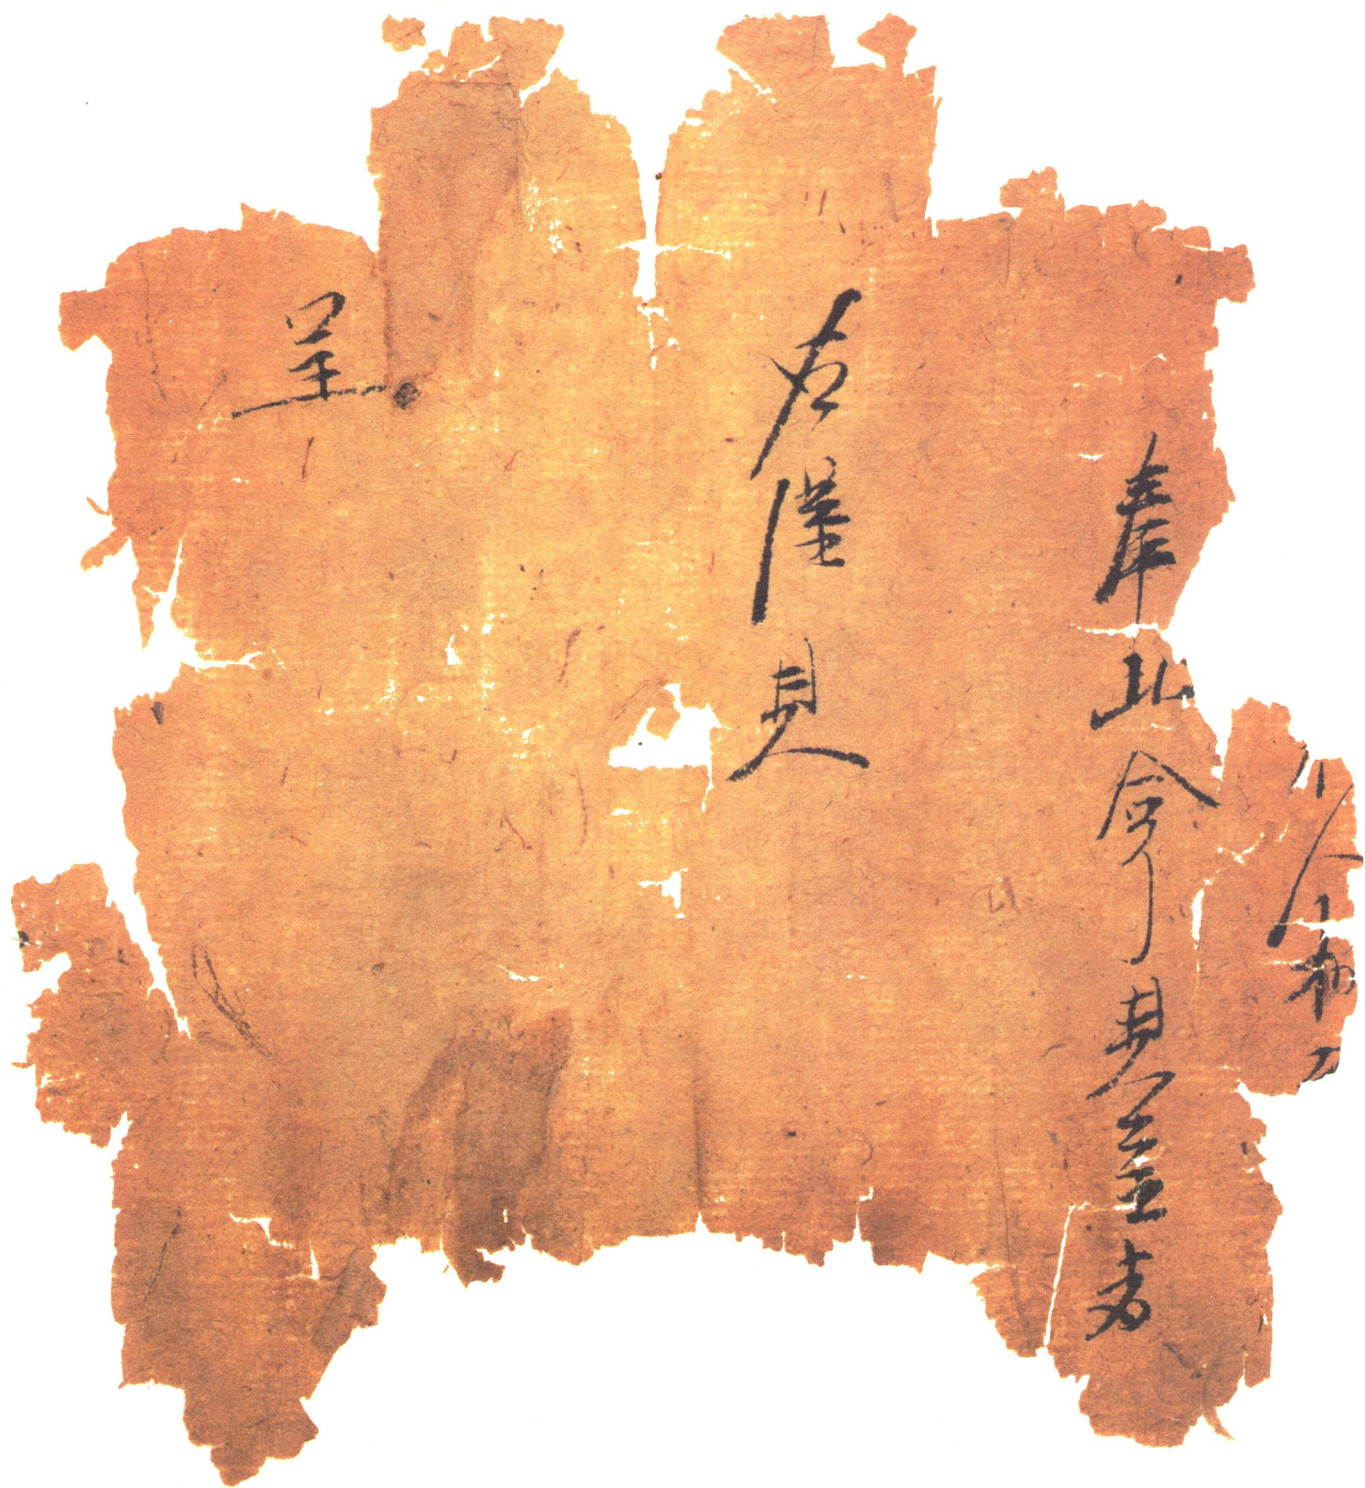 奉此合行具呈者
右謹具
呈